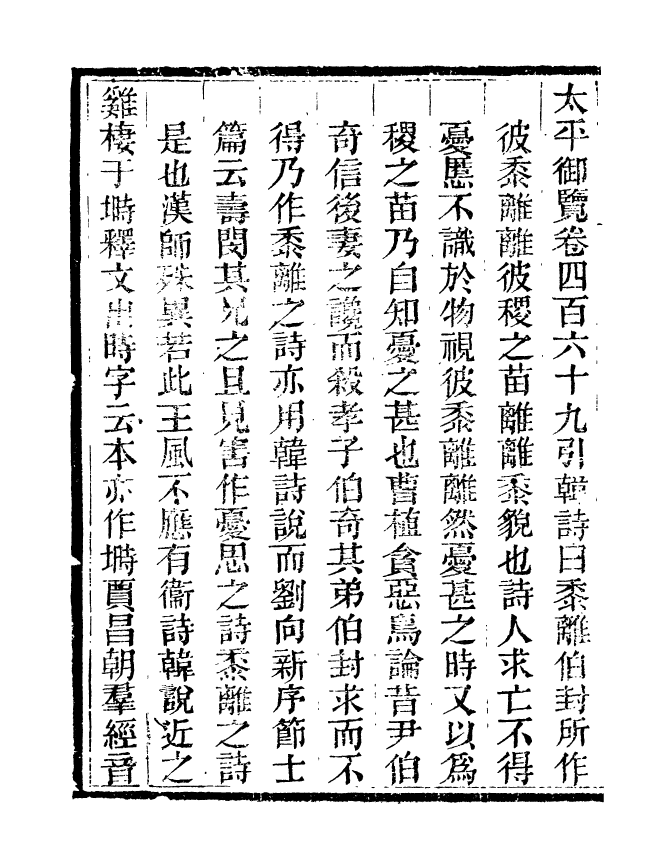 太平御覽卷四百六十九引韓詩曰黍離伯封所作
彼黍離離彼稷之苗離離黍貌也詩人求亡不得
憂懣不識於物視彼黍離離然憂甚之時又以爲
稷之苗乃自知憂之甚也曹植貪惡鳥論昔尹伯
奇信後妻之讒而殺孝子伯奇其弟伯封求而不
得乃作黍離之詩亦用韓詩說而劉向新序節士
篇云壽閔其兄之且見害作憂思之詩黍離之詩
是也漢師殊異若此王風不應有衞詩韓說近之
雞棲于塒釋文出時字云本亦作塒賈昌朝羣經音